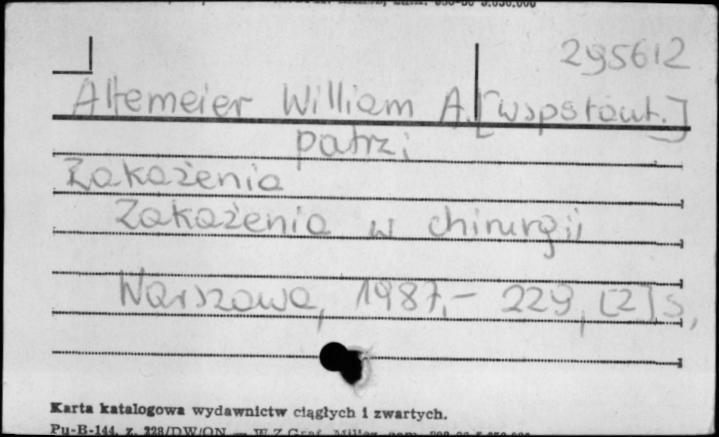 295612
Altemeier William A. [współaut.]
patrz:
Zakażenia
Zakażenia w chirurgii
Warszawa, 1987,- 229, [2] s,
Karta katalogowa wydawnictw ciągłych i zwartych.
Pu-B-144, z. 228/DW/ON — W.Z.Graf.